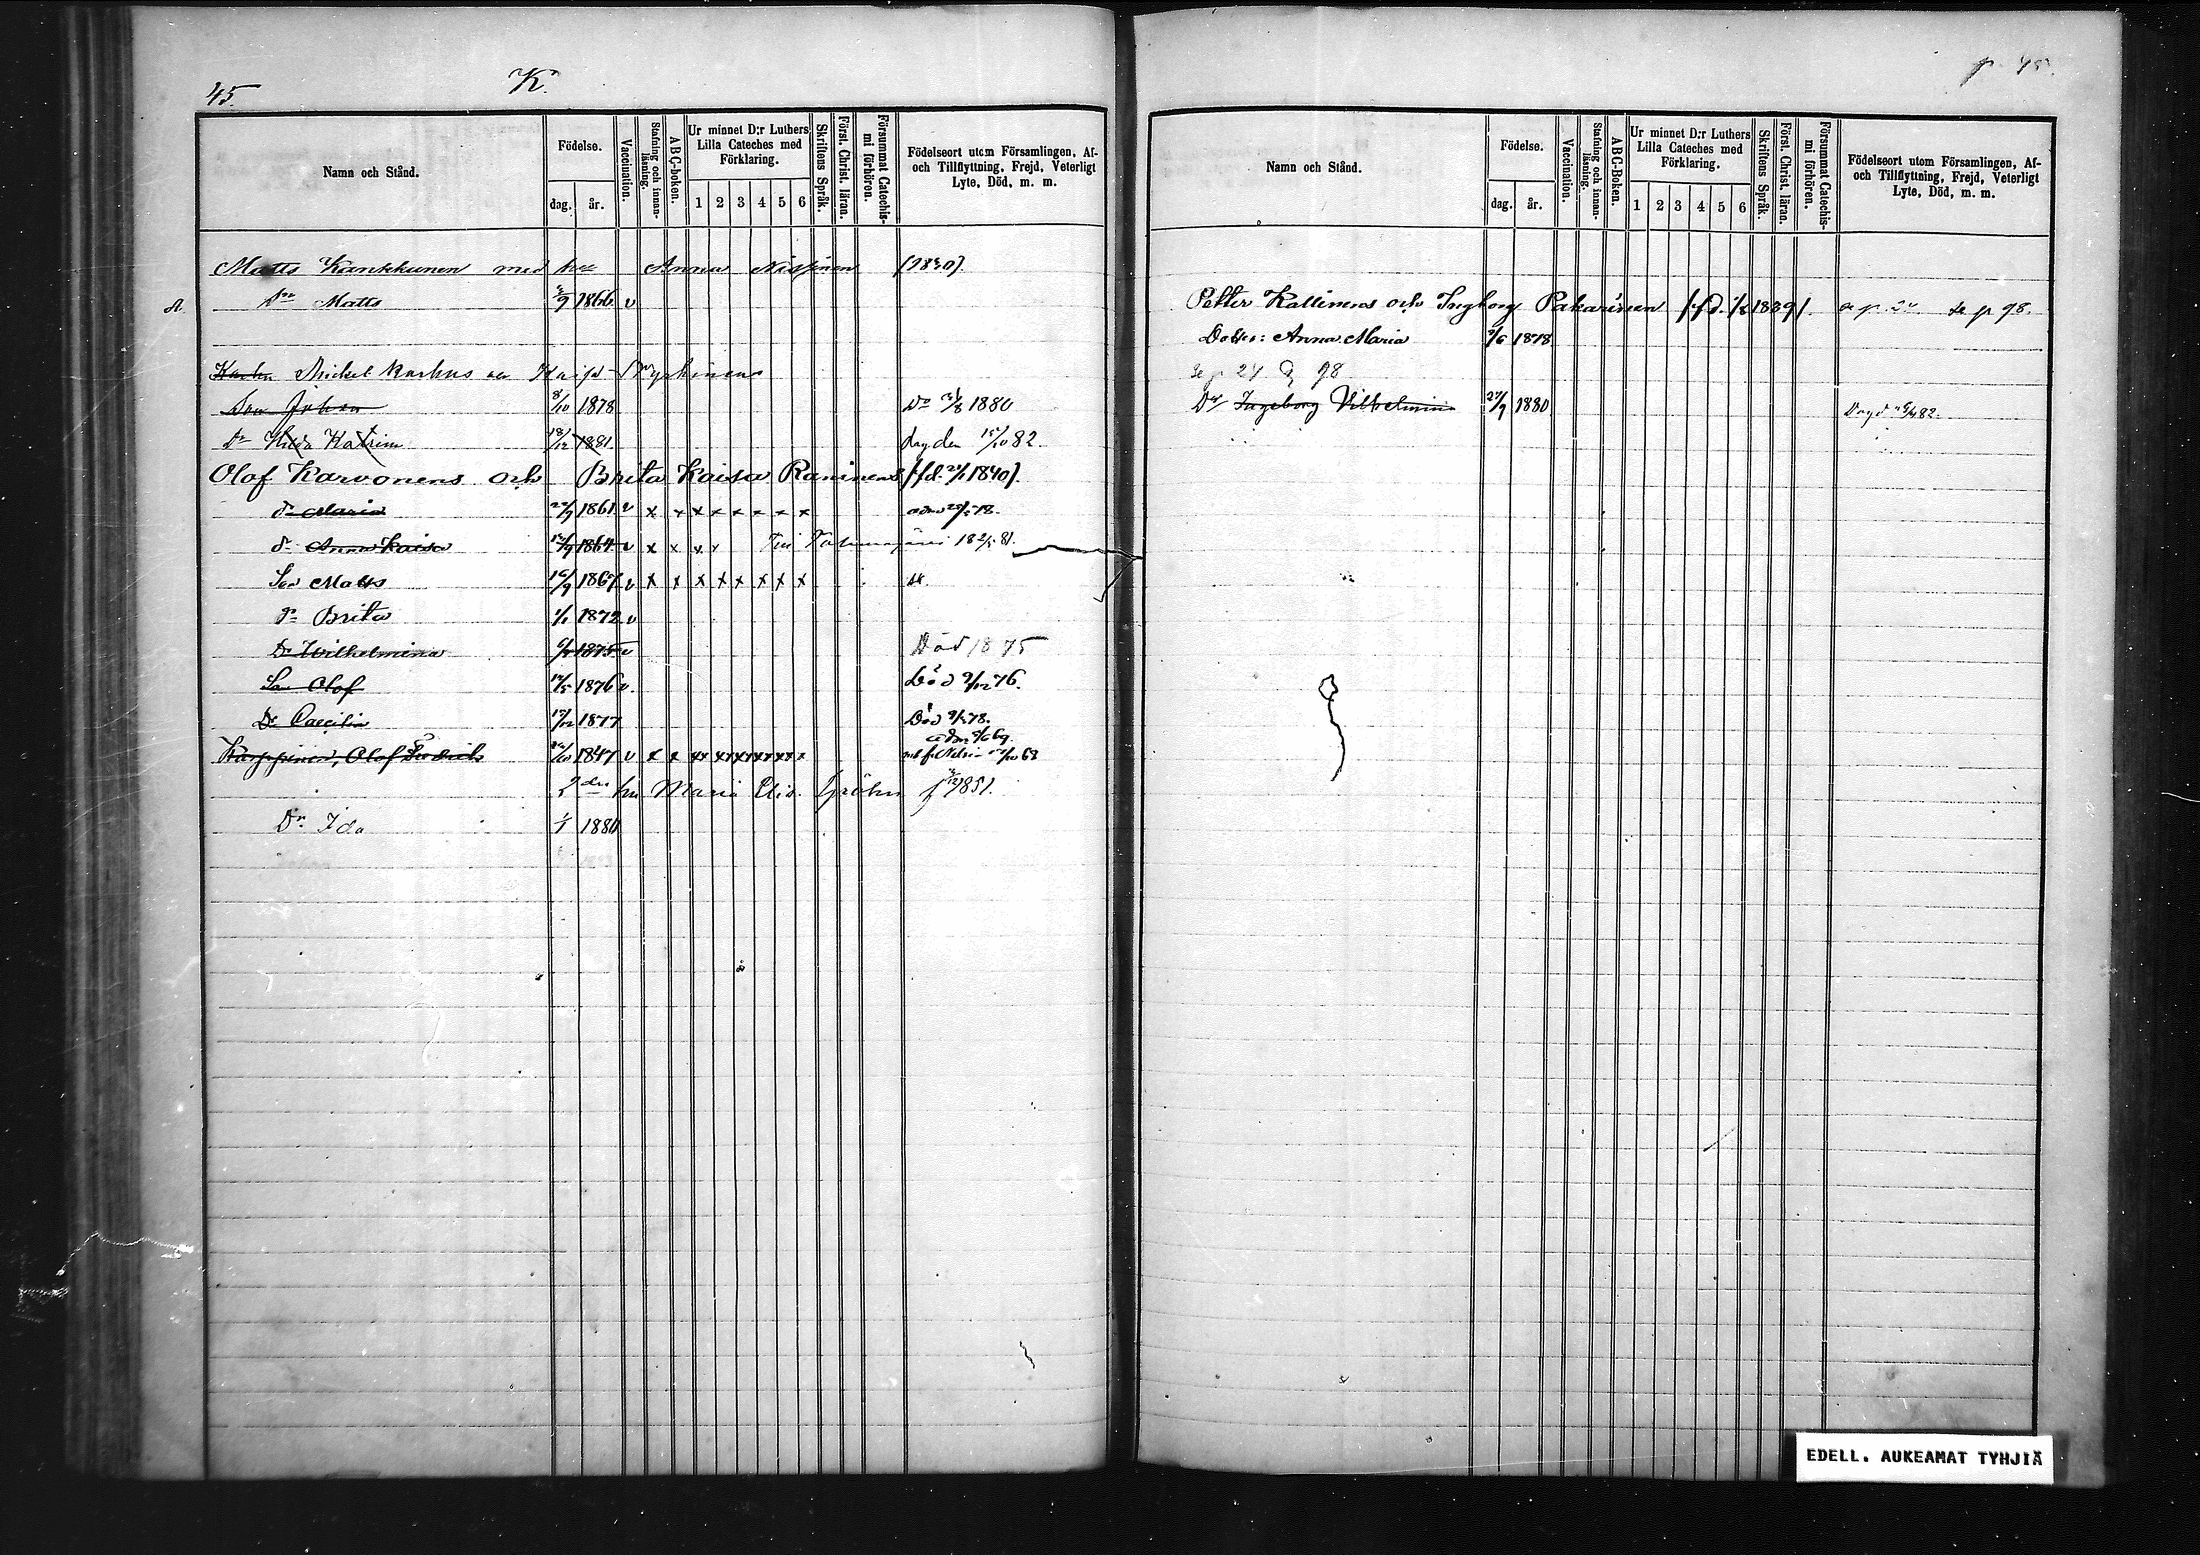 45.
K.
Namn och Stånd.
Födelse.
dag.
år.
Vaccination.
Stafning och innanläsning.
ABC-boken.
Ur minnet D:r Luthers Lilla Cateches med Förklaring.
1 2 3 4 5 6
Skriftens Språk.
Först. Christ. läran.
Försummat Catechismi förhören.
Födelseort utom Församlingen, Af- och Tillflyttning, Frejd, Veterligt Lyte, Död, m. m.
Matts Kankkunen med Anna Nissinen (1830)
Dn Matts 1866 v
Mickel Karhus Kaisa Hyrkinens
Son Johan 8/10 1878 1880
Dr Hilda Katrina 18/12 1881 15/10 82.
Olof Karvonens och Brita Kaisa Raninens (fd. 21/1 1840).
d. Maria 22/9 1861 v x x x x x x x x
d. Anna Kaisa 1864 v x x x x
Son Matts 16/9 1867 v x x x x x x x x
d. Brita 1/1 1872 v
Dr Wilhelmina 1875 v Död 1875
Son Olof 1876 v. Död 9/12 76.
Dr Caecilia 1877 Död 78.
Karppinen, Olof Fredrik 1847 v x x
2 dra hu Maria Elis. 1851.
Dr. Ida 1/1 1880
p. 45.
Namn och Stånd.
Födelse.
dag.
år.
Vaccination.
Stafning och innanläsning.
ABC-Boken.
Ur minnet D:r Luthers Lilla Cateches med Förklaring.
1 2 3 4 5 6
Skriftens Språk.
Först. Christ. läran.
Försummat Catechismi förhören.
Födelseort utom Församlingen, Af- och Tillflyttning, Frejd, Veterligt Lyte, Död, m. m.
Petter Kallinens och Ingborg Pakarinen 1839 se p 98.
Dotter: Anna Maria 9/6 1878
se p 24 & 98
Dr Ingeborg Vilhelmina 27/9 1880 82.
EDELL. AUKEAMAT TYHJIÄ